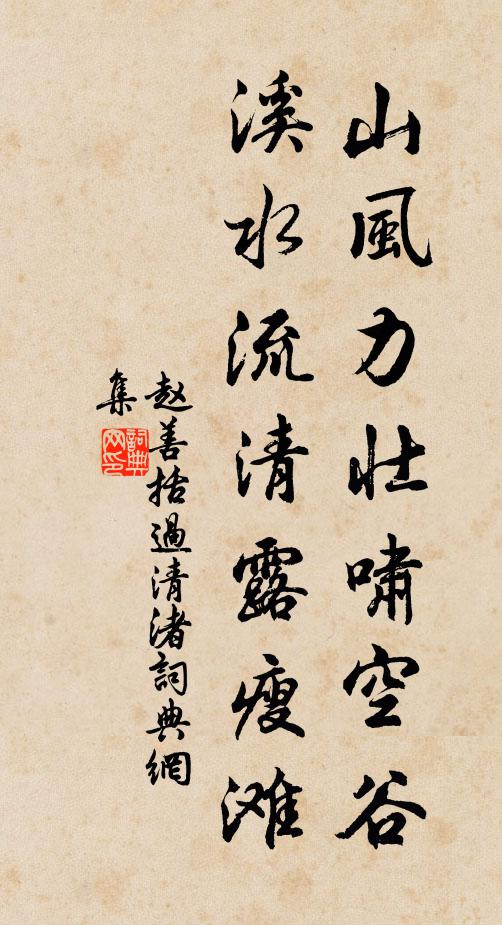 山風力壯嘯空谷
溪水流清露瘦滩
赵善括過清渚詞典網
集
詞典網印